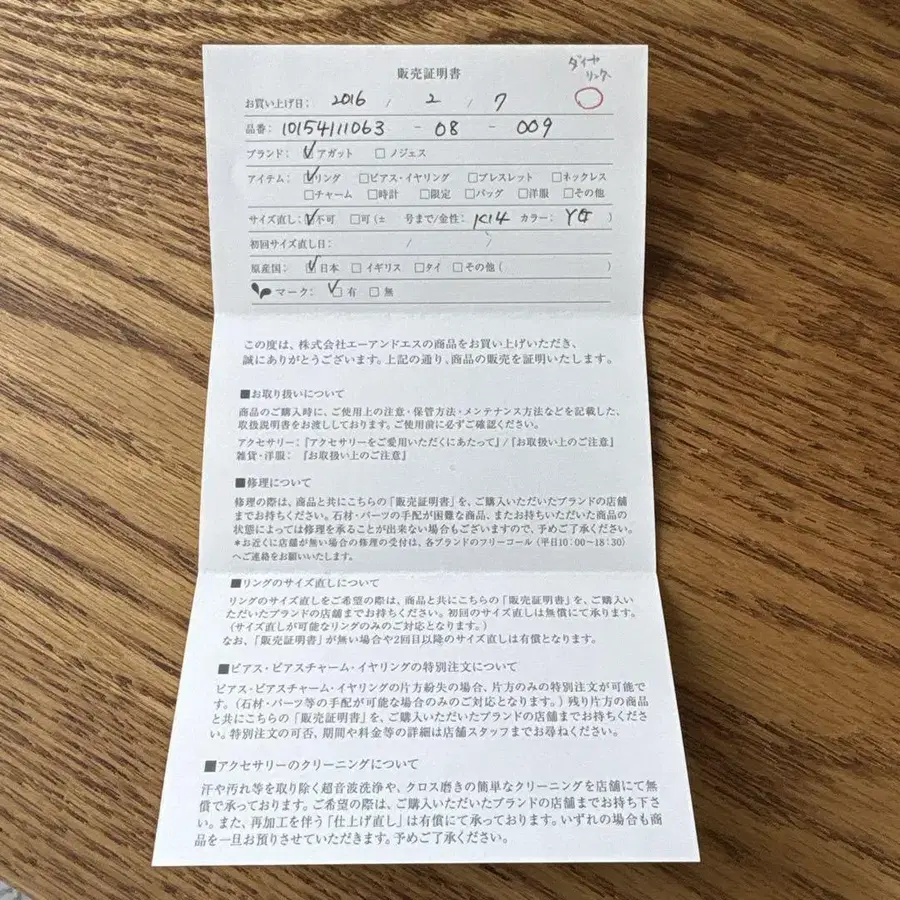 ダイヤ
リング
販売証明書
お買い上げ日： 2016 / 2 / 7
品番： 10154111063 - 08 - 009
ブランド： ☑アガット □ノジェス
アイテム： ☑リング □ピアス・イヤリング □ブレスレット □ネックレス
□チャーム □時計 □限定 □バッグ □洋服 □その他
サイズ直し： ☑不可 □可（± 号まで/金性： K14 カラー： YG ）
初回サイズ直し日： / /
原産国： ☑日本 □イギリス □タイ □その他（ ）
マーク： ☑有 □無
この度は、株式会社エーアンドエスの商品をお買い上げいただき、
誠にありがとうございます。上記の通り、商品の販売を証明いたします。
■お取り扱いについて
商品のご購入時に、ご使用上の注意・保管方法・メンテナンス方法などを記載した、
取扱説明書をお渡ししております。ご使用前に必ずご確認ください。
アクセサリー：『アクセサリーをご愛用いただくにあたって』/『お取扱い上のご注意』
雑貨・洋服： 『お取扱い上のご注意』
■修理について
修理の際は、商品と共にこちらの「販売証明書」を、ご購入いただいたブランドの店舗
までお持ちください。石材・パーツの手配が困難な商品、またお持ちいただいた商品の
状態によっては修理を承ることが出来ない場合もございますので、予めご了承ください。
＊お近くに店舗が無い場合の修理の受付は、各ブランドのフリーコール（平日10：00〜18：30）
へご連絡をお願いいたします。
■リングのサイズ直しについて
リングのサイズ直しをご希望の際は、商品と共にこちらの「販売証明書」を、ご購入い
ただいたブランドの店舗までお持ちください。初回のサイズ直しは無償にて承ります。
（サイズ直しが可能なリングのみのご対応となります。）
なお、「販売証明書」が無い場合や2回目以降のサイズ直しは有償となります。
■ピアス・ピアスチャーム・イヤリングの特別注文について
ピアス・ピアスチャーム・イヤリングの片方紛失の場合、片方のみの特別注文が可能で
す。（石材・パーツ等の手配が可能な場合のみのご対応となります。）残り片方の商品
と共にこちらの「販売証明書」を、ご購入いただいたブランドの店舗までお持ちくださ
い。特別注文の可否、期間や料金等の詳細は店舗スタッフまでお尋ねください。
■アクセサリーのクリーニングについて
汗や汚れ等を取り除く超音波洗浄や、クロス磨きの簡単なクリーニングを店舗にて無
償で承っております。ご希望の際は、ご購入いただいたブランドの店舗までお持ち下さ
い。また、再加工を伴う「仕上げ直し」は有償にて承っております。いずれの場合も商
品を一旦お預りさせていただきます。予めご了承ください。